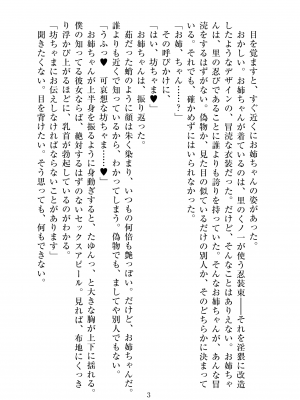 目を覚ますと、すぐ近くにお姉ちゃんの姿があった。
おかしい。お姉ちゃんが着ているのは、里のくノ一が使う忍装束――それを淫猥に改造
したようなデザインの、冒涜な衣装だった。だけど、そんなことはありえない。お姉ちゃ
んは、里の忍びであることに誰よりも誇りを持っていた。そんなお姉ちゃんが、あんな冒
涜をするはずがない。偽物か、見た目の似ているだけの別人か、そのどちらかに決まって
いる。それでも、確かめずにはいられなかった。
「お姉、ちゃん……？」
その呼びかけに、
「はい坊ちゃま♥」
お姉ちゃんは、振り返った。
茹だった蛸のように顔は朱く染まり、いつもの何倍も艶っぽい。だけど、お姉ちゃんだ。
誰よりも近くで知っているから、わかってしまう。偽物でも、ましてや別人でもない。
「うふっ♥ 可哀想な坊ちゃま……♥」
お姉ちゃんが上半身を振るように身動ぎすると、たゆんっ、と大きな胸が上下に揺れる。
僕の知ってる彼女ならば、絶対するはずのないセックスアピール。見れば、布地にくっき
り浮かび上がるほどに、乳首が勃起しているのがわかる。
「坊ちゃまにお伝えしなければならないことがあります」
聞きたくない。目を背けたい。そう思っても、何もできない。
3